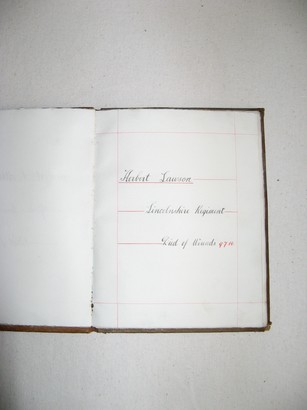 Herbert Lawson
Lincolnshire Regiment
Died of Wounds